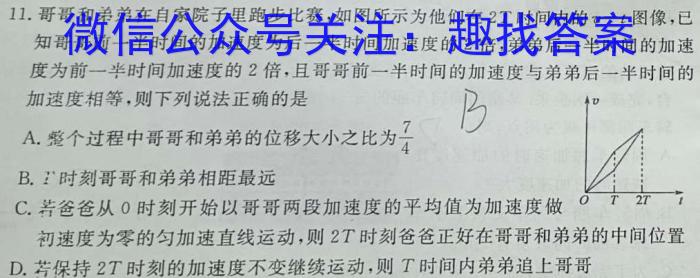 11. 哥哥和弟弟在自家院子里跑步比赛,如图所示为他们在2T时间内的v-t图像,已
微信公众号关注:趣找答案
知哥哥前一半时间的加速度为后一半时间加速度的2倍,弟弟后一半时间的加速
度为前一半时间加速度的 2 倍,且哥哥前一半时间的加速度与弟弟后一半时间的
加速度相等,则下列说法正确的是
B
A. 整个过程中哥哥和弟弟的位移大小之比为7/4
B. T时刻哥哥和弟弟相距最远
C. 若爸爸从 0 时刻开始以哥哥两段加速度的平均值为加速度做
初速度为零的匀加速直线运动,则 2T 时刻爸爸正好在哥哥和弟弟的中间位置
D. 若保持 2T 时刻的加速度不变继续运动,则 T 时间内弟弟追上哥哥
v
O T 2T t